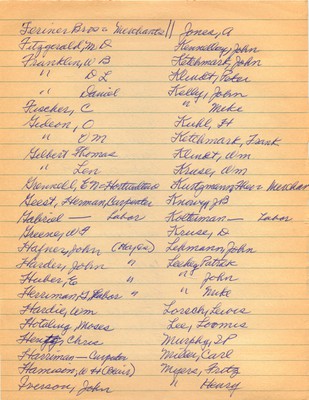 Feriner Bros - Merchants
Fitzgerald, M. D
Franklin, W B
" D L
" Daniel
Fischer, C
Gideon, O
" O M
Gilbert Thomas
" Len
Grennell, E N - Horticulturist
Geest, Herman, Carpenter
Gabriel — Labor
Greene, W F
Hafner, John (Major)
Harder, John "
Huber, E "
Herriman, G Labor "
Hardie, Wm
Hotaling Moses
Hentz, Chris
Harriman - Carpenter
Hamison, W H
Iverson, John
Jones, A
Kennedley, John
Ketchmark, John
Klinkt, Peter
Kelly, John
" Mike
Kuhl, H
Ketchmark, Frank
Klinkt, Wm
Kruse, Wm
Kurtzmann, Merchan
Knasy, J B
Koltzman — Labor
Kruse, D
Lehmann, John
Leahey Patrick
" John
" Mike
Lorsch, Lewis
Lee, Loomis
Murphy, S P
Miller, Carl
Myers, Fritz
" Henry